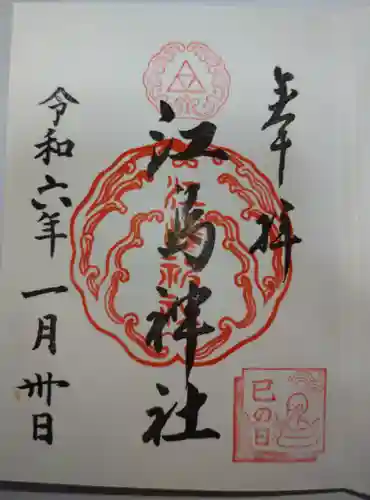 奉拝
江島神社
令和六年一月卅日
巳の日